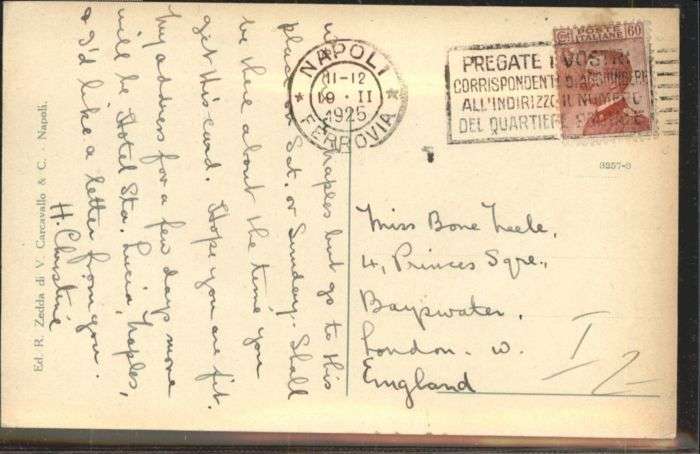 Naples but go to this
place on Sat. or Sunday. Shall
be there about the time you
get this card. Hope you are fit.
My address for a few days more
will be Hotel Sta. Lucia, Naples,
& I'd like a letter from you.
H. Christine
Ed. R. Zedda di V. Carcavallo & C. Napoli.
NAPOLI
11-12
10 · II
1925
FERROVIA
PREGATE I VOSTRI
CORRISPONDENTI D'AGGIUNGERE
ALL'INDIRIZZO IL NUMERO
DEL QUARTIERE POSTALE
POSTE
ITALIANE
60
3257-3
Miss Bone Neele,
4, Princes Sqre.,
Bayswater,
London. W.
England
I